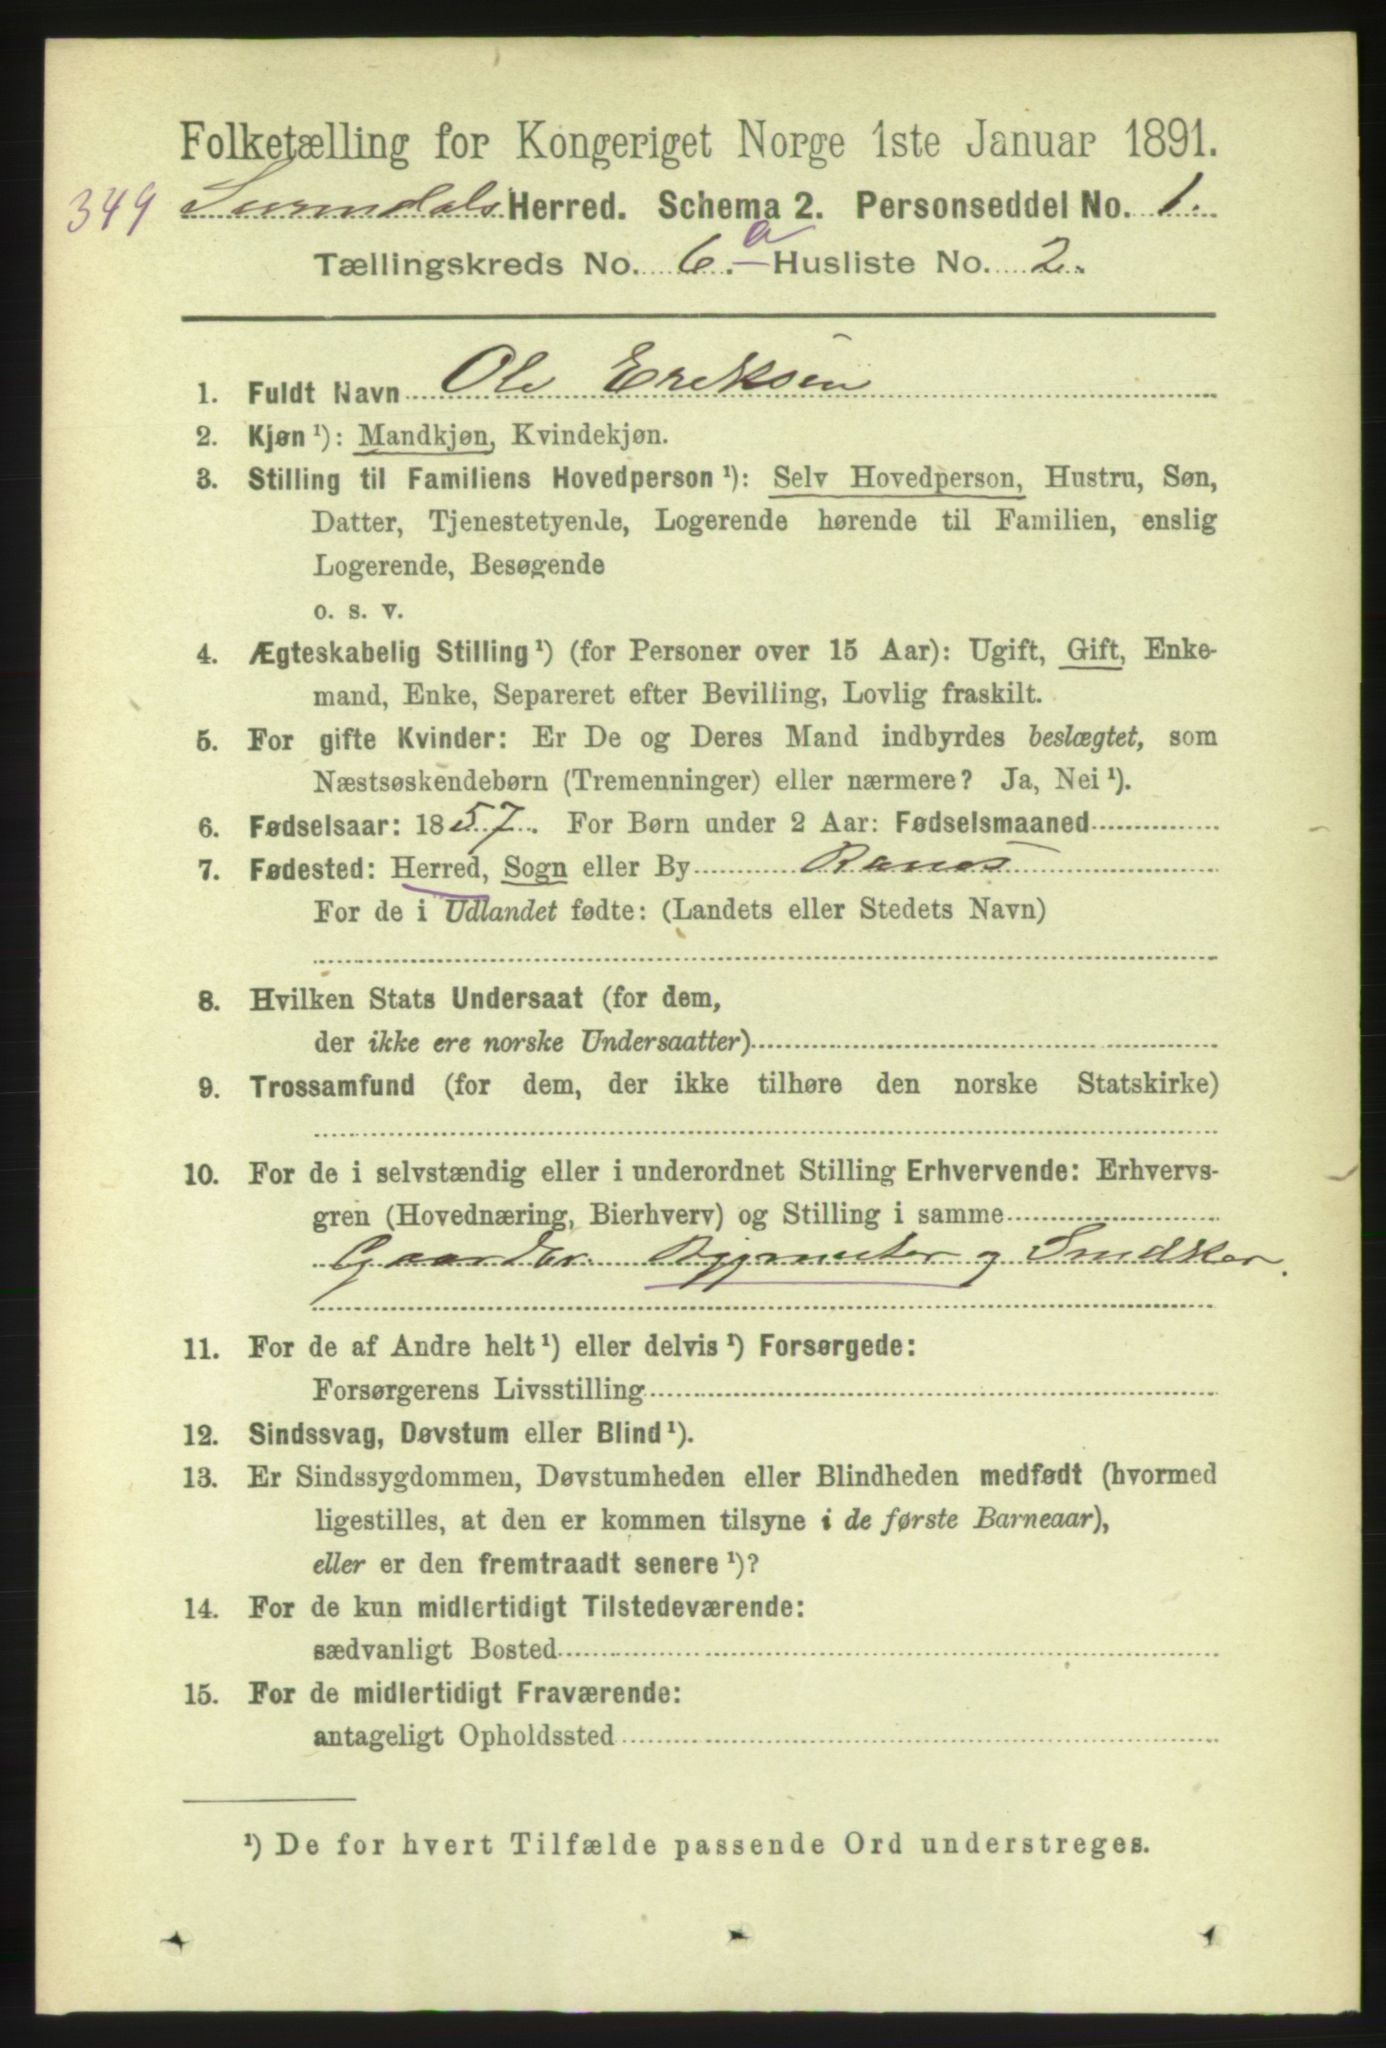 Folketælling for Kongeriget Norge 1ste Januar 1891.
349 Surendals Herred. Schema 2. Personseddel No. 1.
Tællingskreds No. 6.a Husliste No. 2.
1. Fuldt Navn Ole Eriksen
2. Kjøn ¹): Mandkjøn, Kvindekjøn.
3. Stilling til Familiens Hovedperson ¹): Selv Hovedperson, Hustru, Søn,
Datter, Tjenestetyende, Logerende hørende til Familien, enslig
Logerende, Besøgende
o. s. v.
4. Ægteskabelig Stilling ¹) (for Personer over 15 Aar): Ugift, Gift, Enke-
mand, Enke, Separeret efter Bevilling, Lovlig fraskilt.
5. For gifte Kvinder: Er De og Deres Mand indbyrdes beslægtet, som
Næstsøskendebørn (Tremenninger) eller nærmere? Ja, Nei ¹).
6. Fødselsaar: 1857. For Børn under 2 Aar: Fødselsmaaned
7. Fødested: Herred, Sogn eller By Ranes
For de i Udlandet fødte: (Landets eller Stedets Navn)
8. Hvilken Stats Undersaat (for dem,
der ikke ere norske Undersaatter)
9. Trossamfund (for dem, der ikke tilhøre den norske Statskirke)
10. For de i selvstændig eller i underordnet Stilling Erhvervende: Erhvervs-
gren (Hovednæring, Bierhverv) og Stilling i samme
Bygmester og Snedker.
11. For de af Andre helt ¹) eller delvis ¹) Forsørgede:
Forsørgerens Livsstilling
12. Sindssvag, Døvstum eller Blind ¹).
13. Er Sindssygdommen, Døvstumheden eller Blindheden medfødt (hvormed
ligestilles, at den er kommen tilsyne i de første Barneaar),
eller er den fremtraadt senere ¹)?
14. For de kun midlertidigt Tilstedeværende:
sædvanligt Bosted
15. For de midlertidigt Fraværende:
antageligt Opholdssted
¹) De for hvert Tilfælde passende Ord understreges.